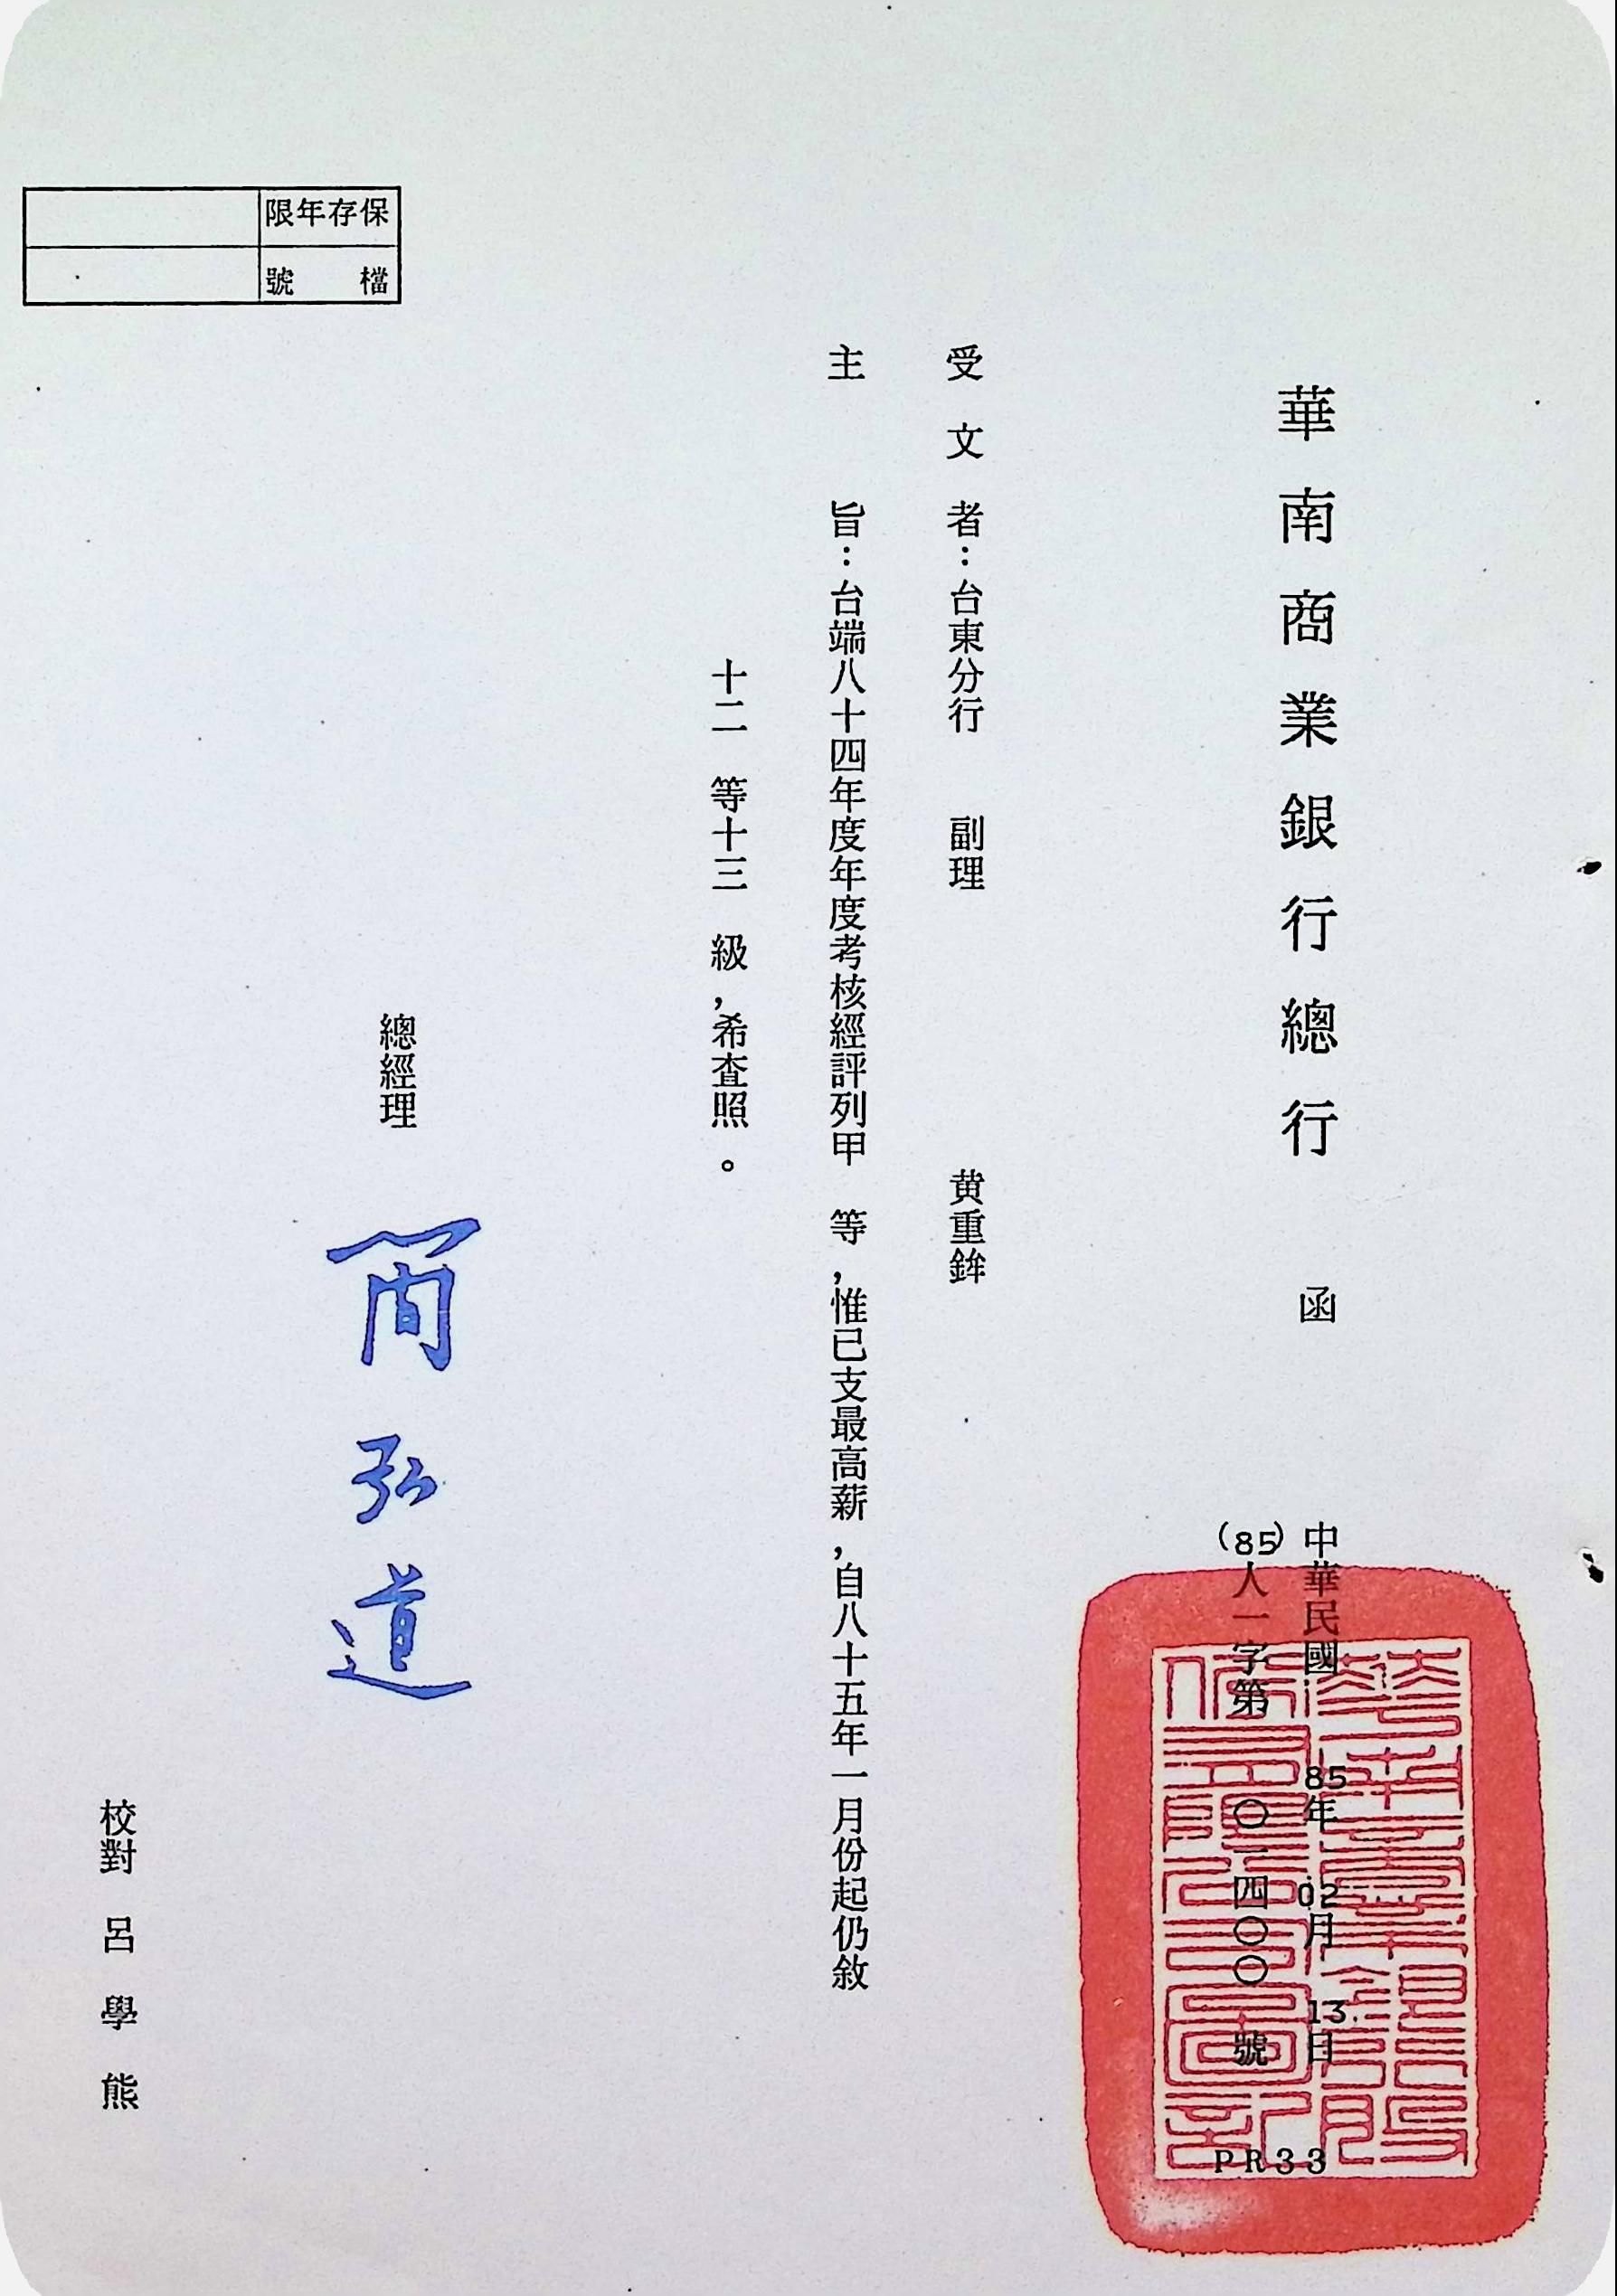 華南商業銀行總行 函
中華民國 85年 02月 13日
(85)人一字第 〇一四〇〇 號
PR33
受文者：台東分行 副理 黄重鉾
主旨：台端八十四年度年度考核經評列甲 等，惟已支最高薪，自八十五年一月份起仍敘
十二 等十三 級，希查照。
總經理 簡弘道
校對 呂學熊
保存年限
檔號
華南商業銀行股
份有限公司圖記